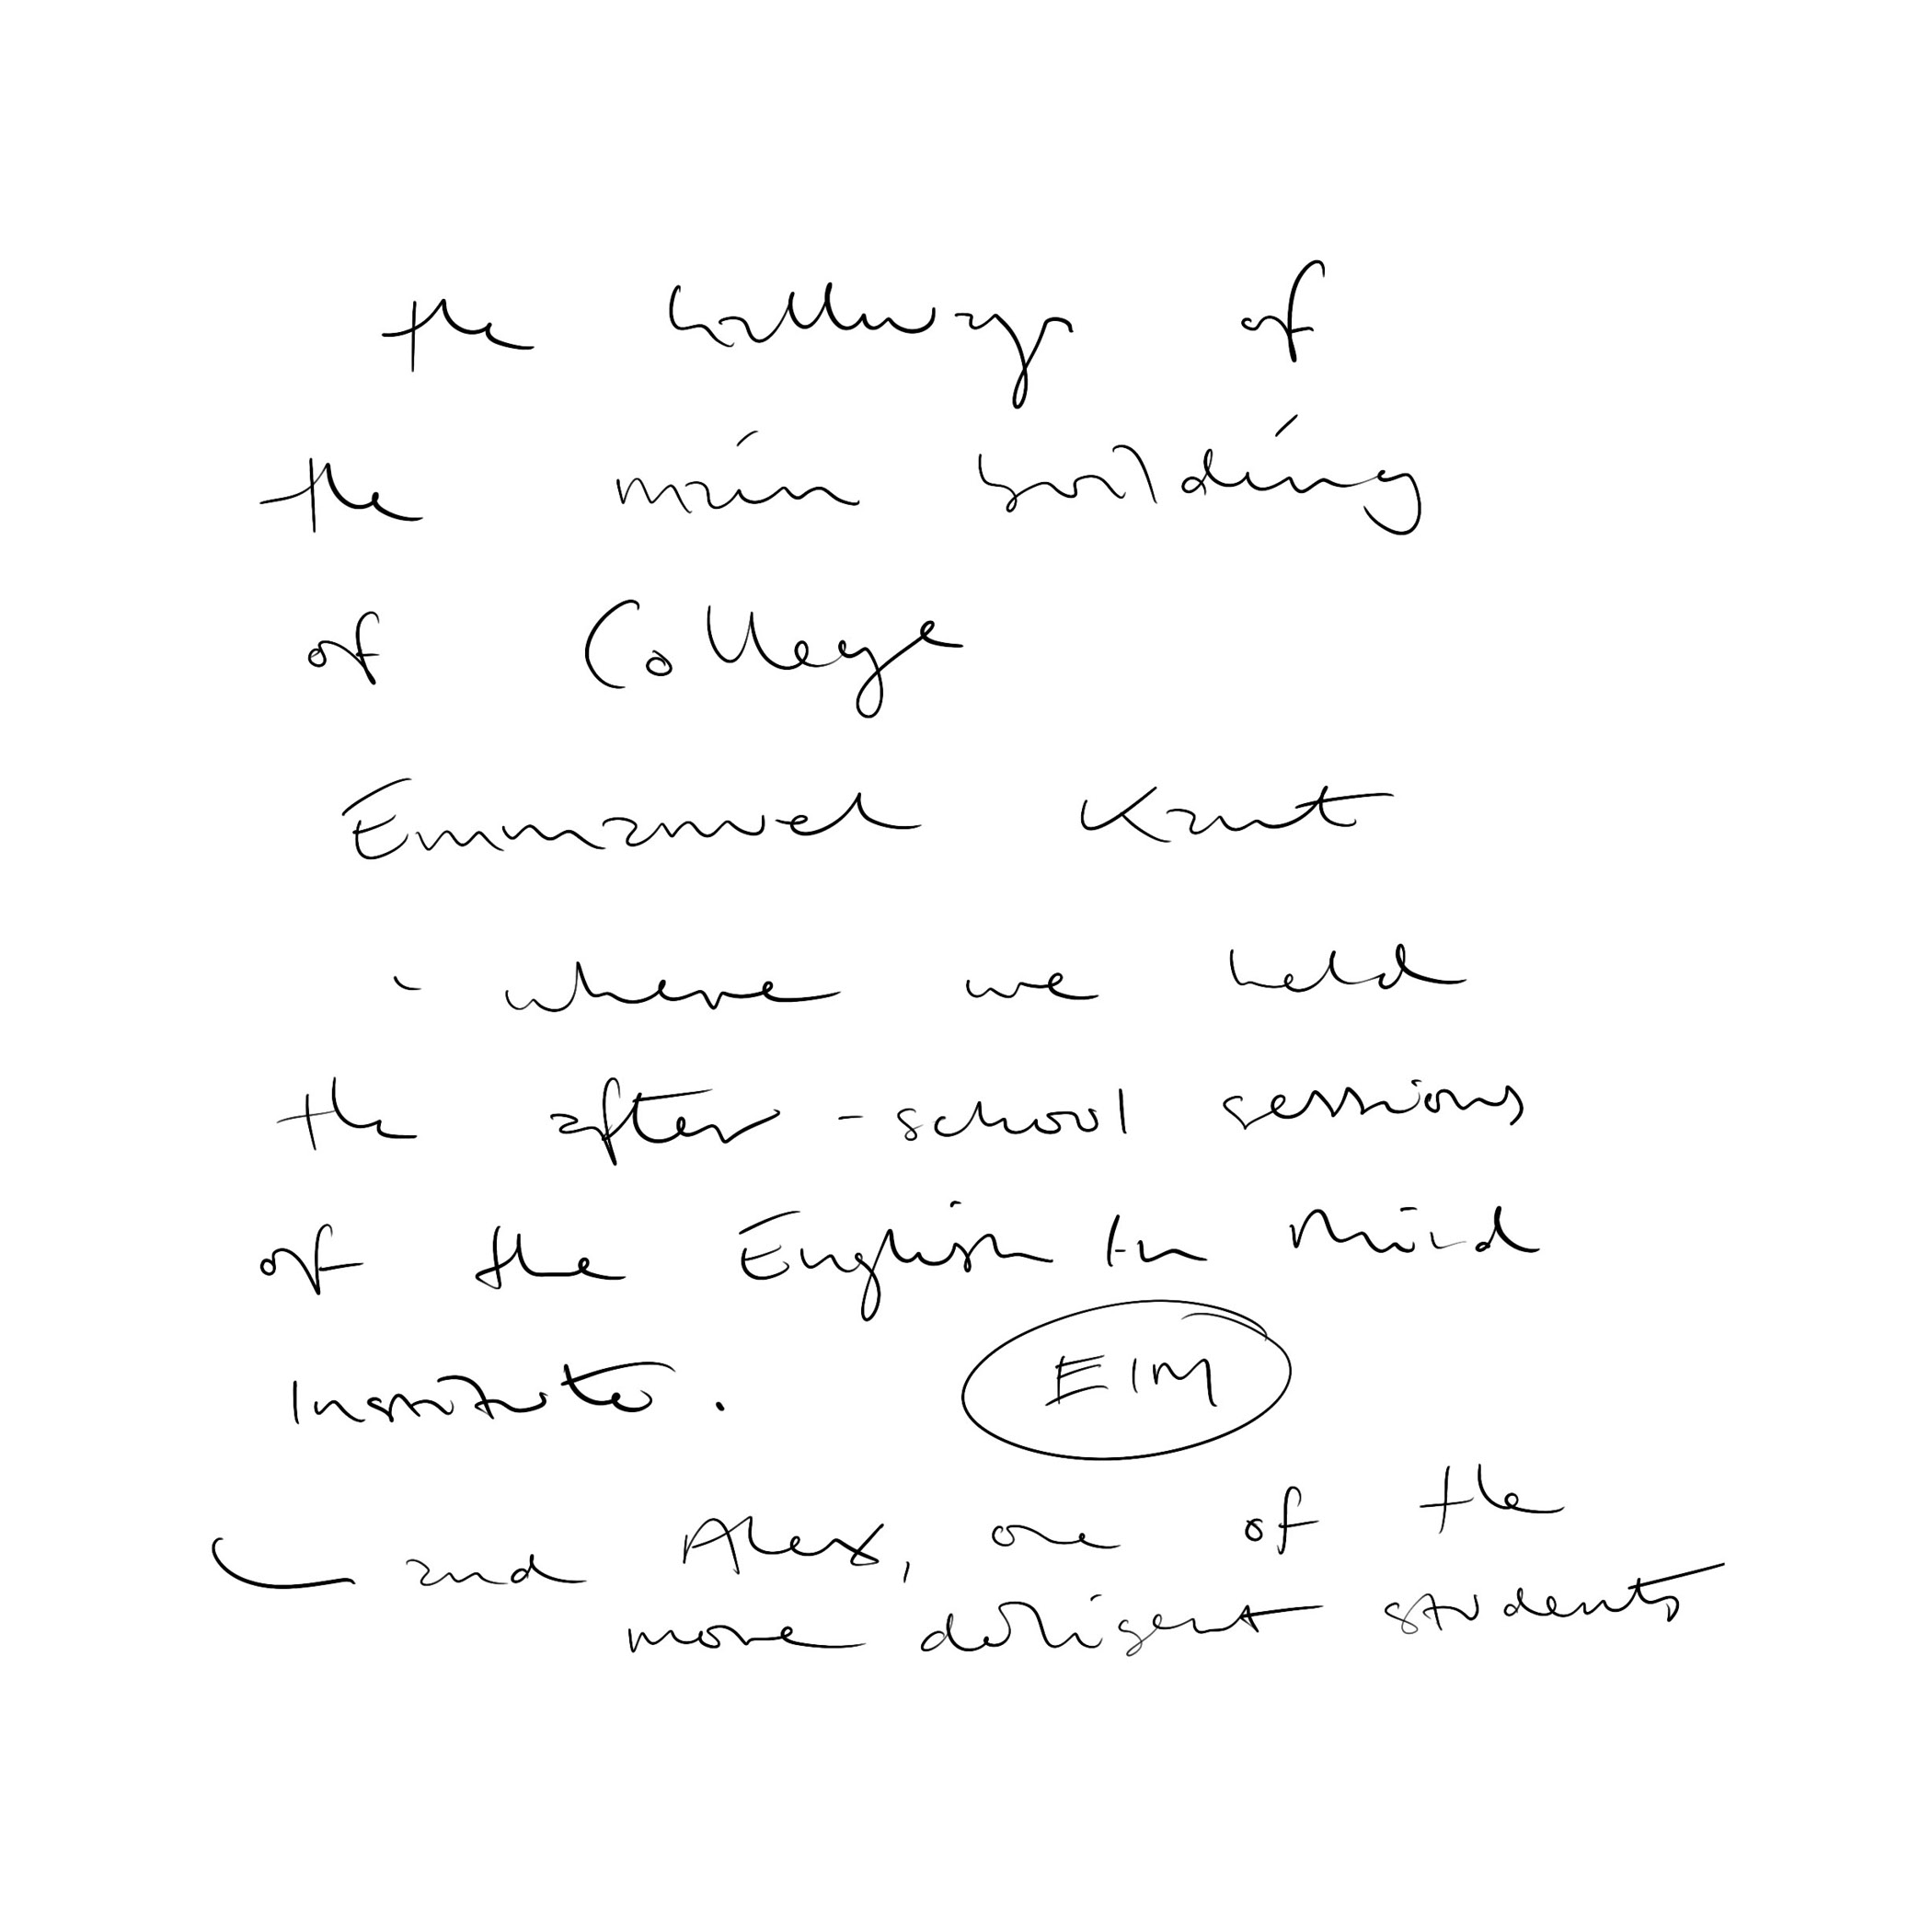 the hallways of
the main building
of College
Emmanuel Kant
- where we held
the after-school sessions
of the English In Mind
Institute.
EIM
and Alex, one of the
more diligent students